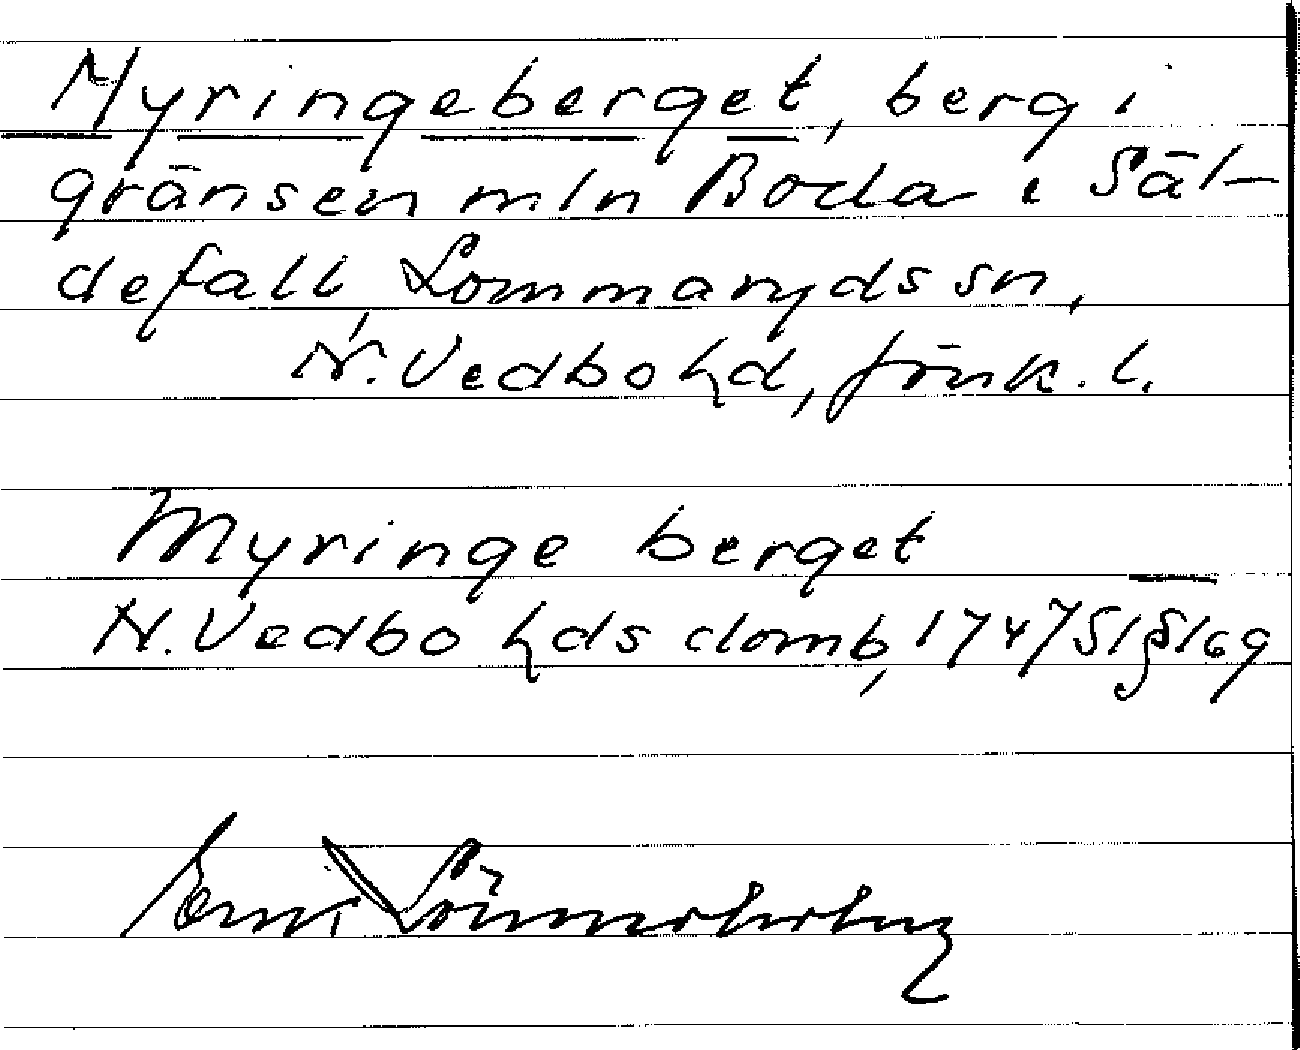 Myringeberget, berg i
gränsen mln Boda i Säl-
defall, Lommaryds sn,
N. Vedbo hd, Jönk. l.
Myringe berget
N. Vedbo hds domb, 1747 S1 § 169